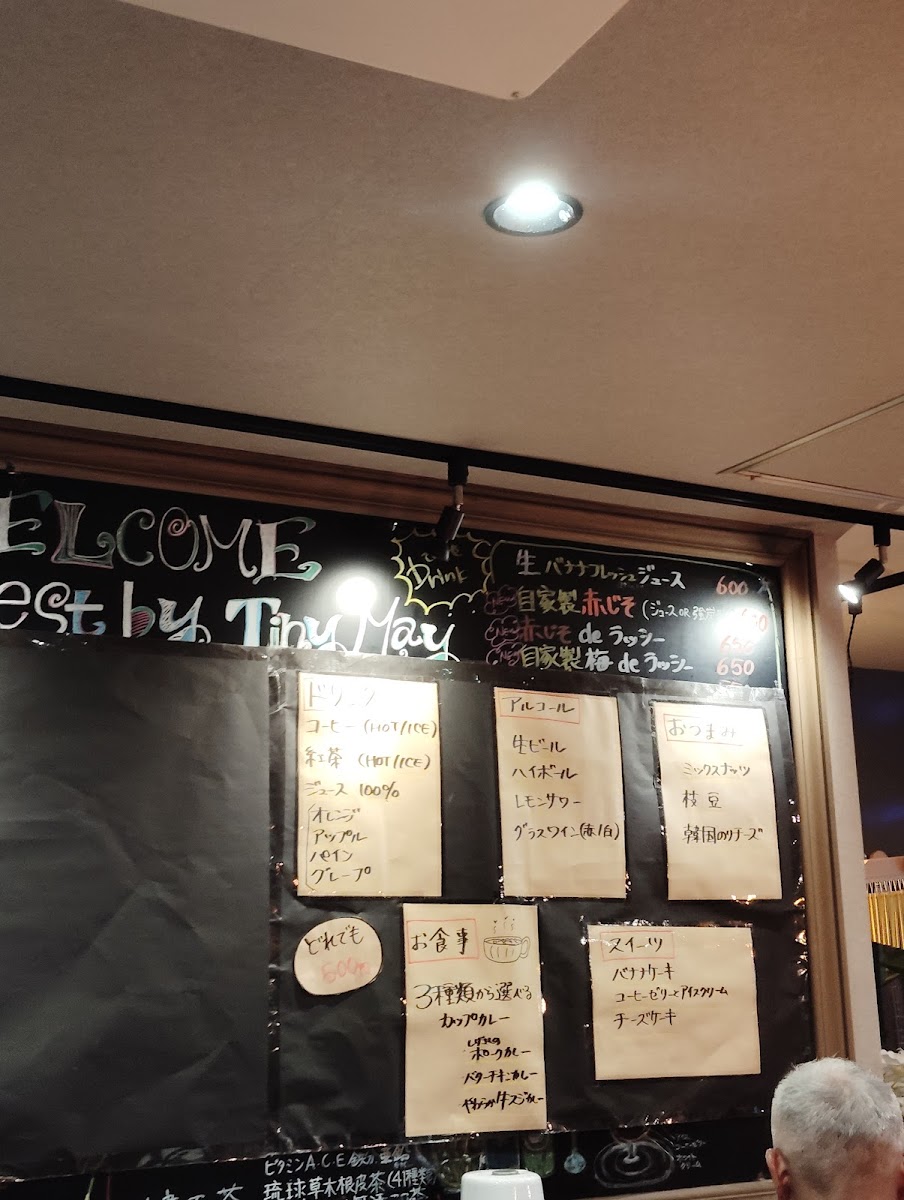 ELCOME
est by Tiny May
Drink
生バナナフレッシュジュース 600
自家製赤じそ(ジュース OR
赤じそ de ラッシー 650
自家製梅 de ラッシー 650
ドリンク
コーヒー (HOT/ICE)
紅茶 (HOT/ICE)
ジュース 100%
オレンジ
アップル
パイン
グレープ
アルコール
生ビール
ハイボール
レモンサワー
グラスワイン(赤/白)
おつまみ
ミックスナッツ
枝豆
韓国のりチーズ
どれでも
500
お食事
3種類から選べる
カップカレー
ポークカレー
バターチキンカレー
やわらか牛スジカレー
スイーツ
バナナケーキ
コーヒーゼリーとアイスクリーム
チーズケーキ
ビタミンA.C.E
琉球草木根皮茶(41種類